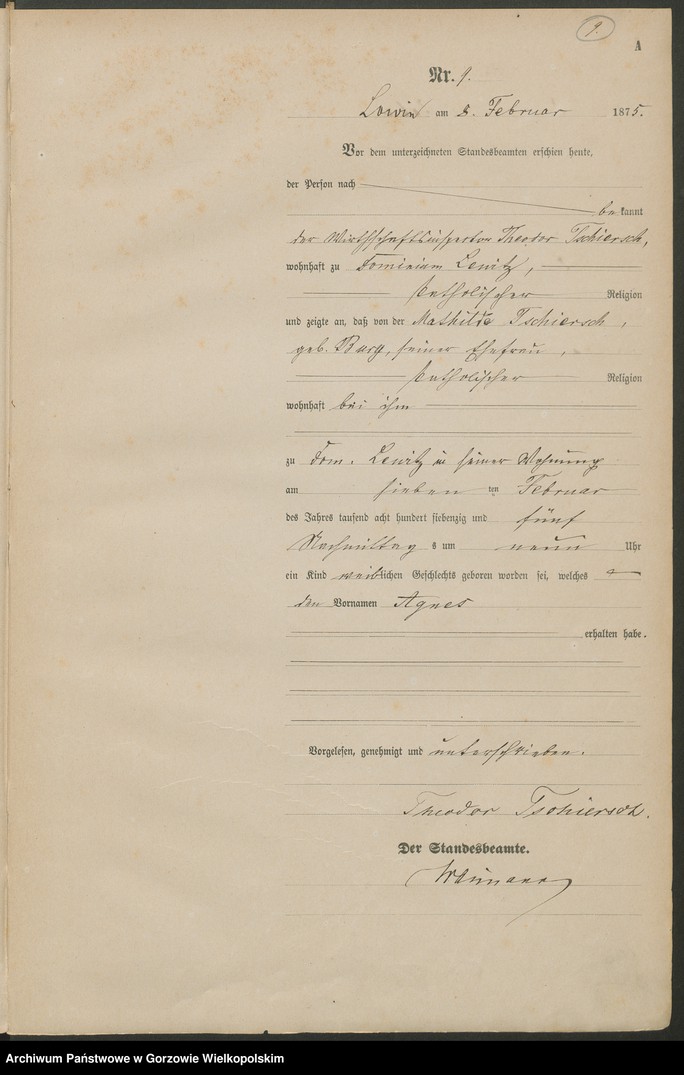 9.
A
Nr. 9.
Lowin am 8. Februar 1875.
Vor dem unterzeichneten Standesbeamten erschien heute,
der Person nach
bekannt
der Wirthschaftsinspektor Theodor Tschiersch,
wohnhaft zu Dominium Lewitz,
katholischer Religion
und zeigte an, daß von der Mathilde Tschiersch,
geb. Burg, seiner Ehefrau,
katholischer Religion
wohnhaft bei ihm
zu Dom. Lewitz in seiner Wohnung
am sieben ten Februar
des Jahres tausend acht hundert siebenzig und fünf
Nachmittags um neun Uhr
ein Kind weiblichen Geschlechts geboren worden sei, welches
den Vornamen Agnes
erhalten habe.
Vorgelesen, genehmigt und unterschrieben.
Theodor Tschiersch.
Der Standesbeamte.
Archiwum Państwowe w Gorzowie Wielkopolskim